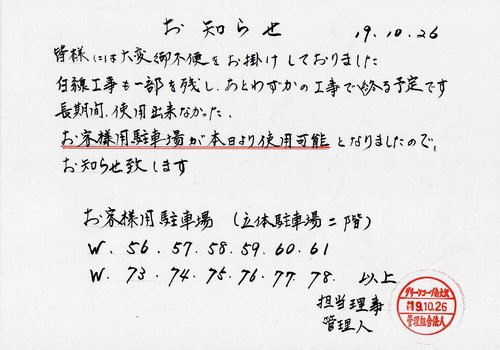 お知らせ
19.10.26
皆様には大変御不便をお掛けしておりました
白線工事も一部を残し、あとわずかの工事で終る予定です
長期間、使用出来なかった、
お客様用駐車場が本日より使用可能となりましたので、
お知らせ致します
お客様用駐車場(立体駐車場二階)
W. 56. 57. 58. 59. 60. 61
W. 73. 74. 75. 76. 77. 78. 以上
担当理事
管理人
19.10.26
管理組合法人